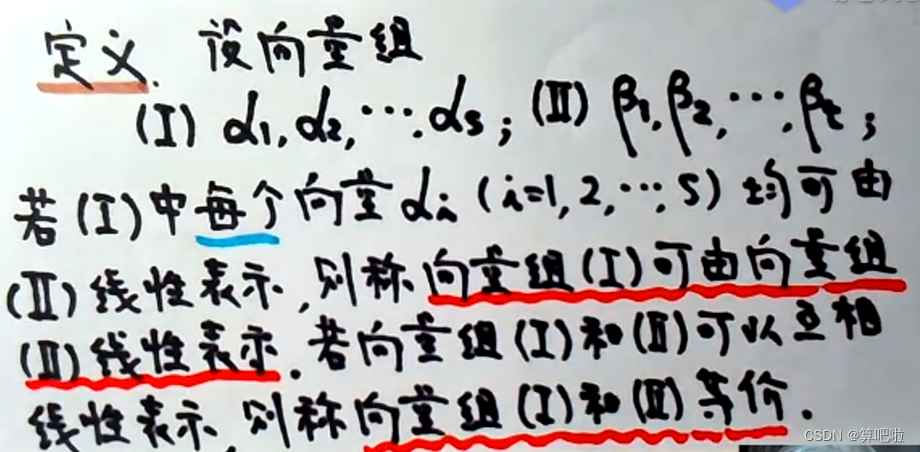 定义. 设向量组
(I) α1,α2,…,αs; (II) β1,β2,…,βt;
若(I)中每个向量αi (i=1,2,…,s) 均可由
(II)线性表示,则称向量组(I)可由向量组
(II)线性表示.若向量组(I)和(II)可以互相
线性表示,则称向量组(I)和(II)等价.
CSDN @算吧啦